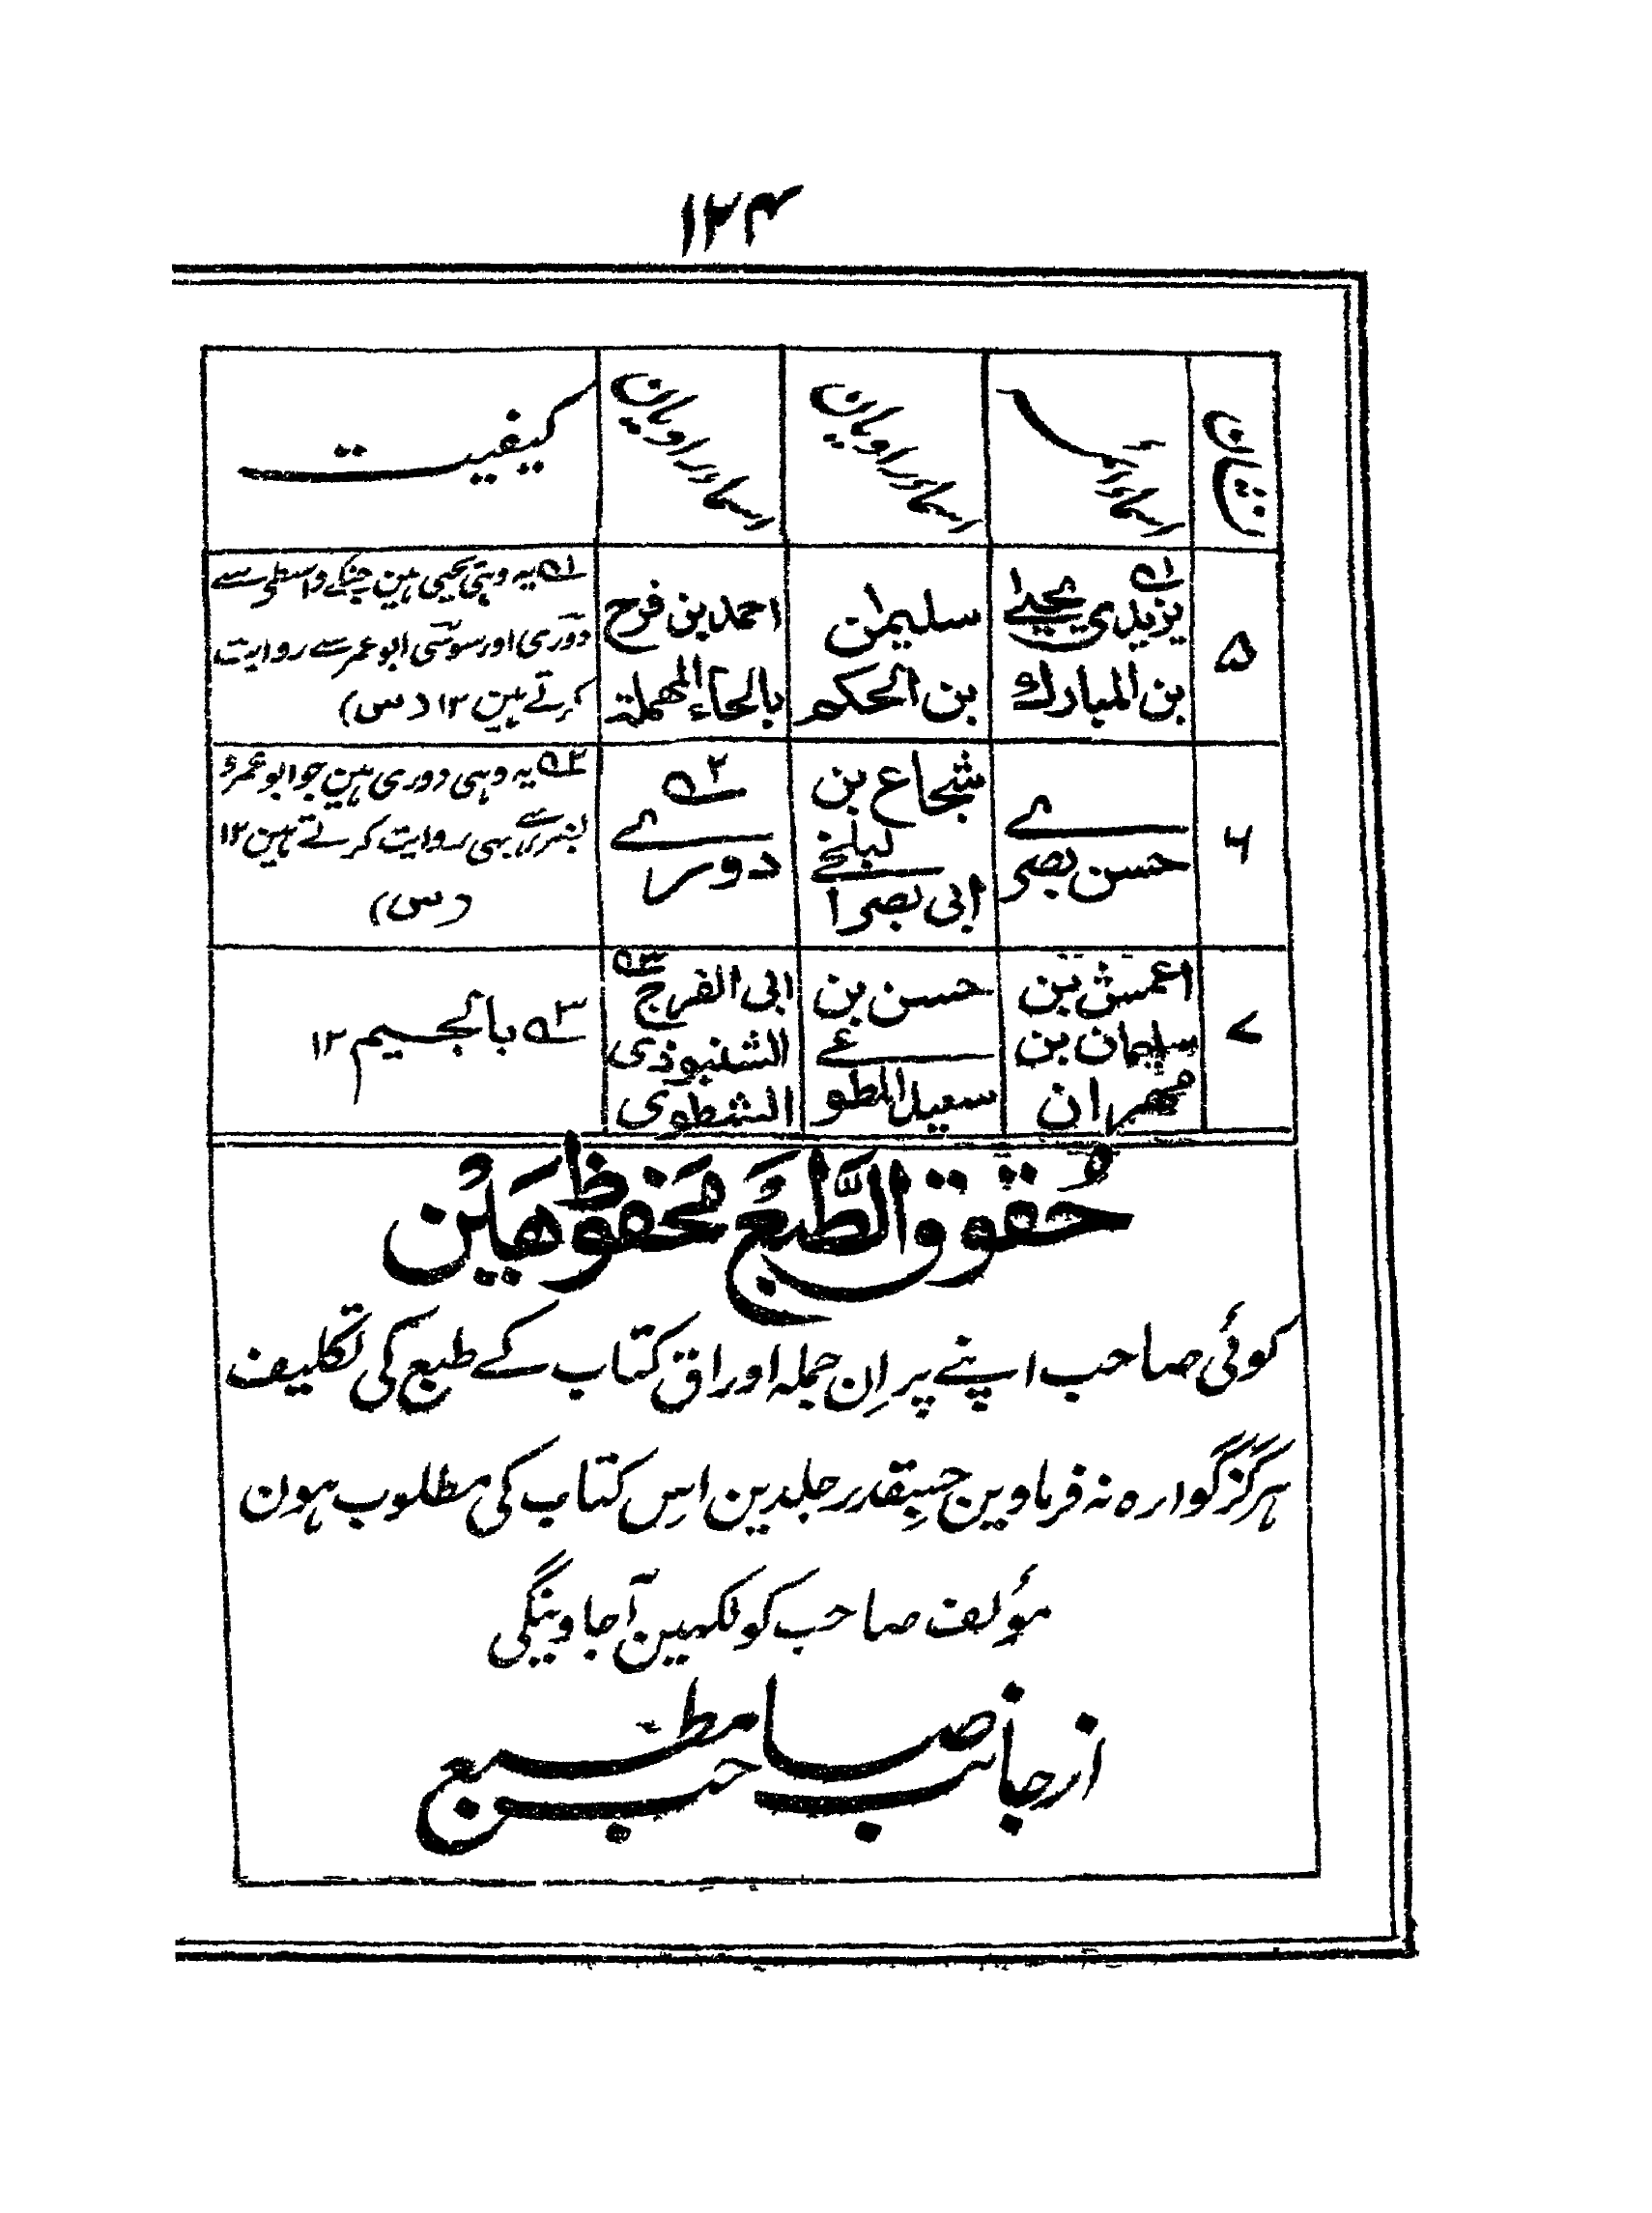 ۱۲۴
نشان
اسماء ائمہ
اسماء راویان
اسماء راویان
کیفیت
۵
یزیدی یحییٰ ۱؎
بن المبارک
سلیمٰن
بن الحکم
احمد بن فرح
بالحاء المهملة
۱؎ یہ وہی یحییٰ ہین جنکے واسطے سے
دوری اور سوسی ابو عمر سے روایت
کرتے ہین ۱۲ (س)
۶
حسن بصری
شجاع بن
ابی نصر البلخی
۲؎
دوری
۲؎ یہ وہی دوری ہین جو ابو عمرو
بصری سے بھی روایت کرتے ہین ۱۲
(س)
۷
اعمش بن
سلیمان بن
مهران
حسن بن
سعید المطوعی
ابی الفرج ۳؎
الشنبوذی
الشطوی
۳؎ بالجیم ۱۲
حُقوق الطَّبع محفوظ ہَیْن
کوئی صاحب اپنے پر اِن جملہ اوراق کتاب کے طبع کی تکلیف
ہرگز گوارہ نہ فرماوین جسقدر جلدین اس کتاب کی مطلوب ہون
مؤلف صاحب کو لکہین آجاوینگی
از جانب صاحب مطبع